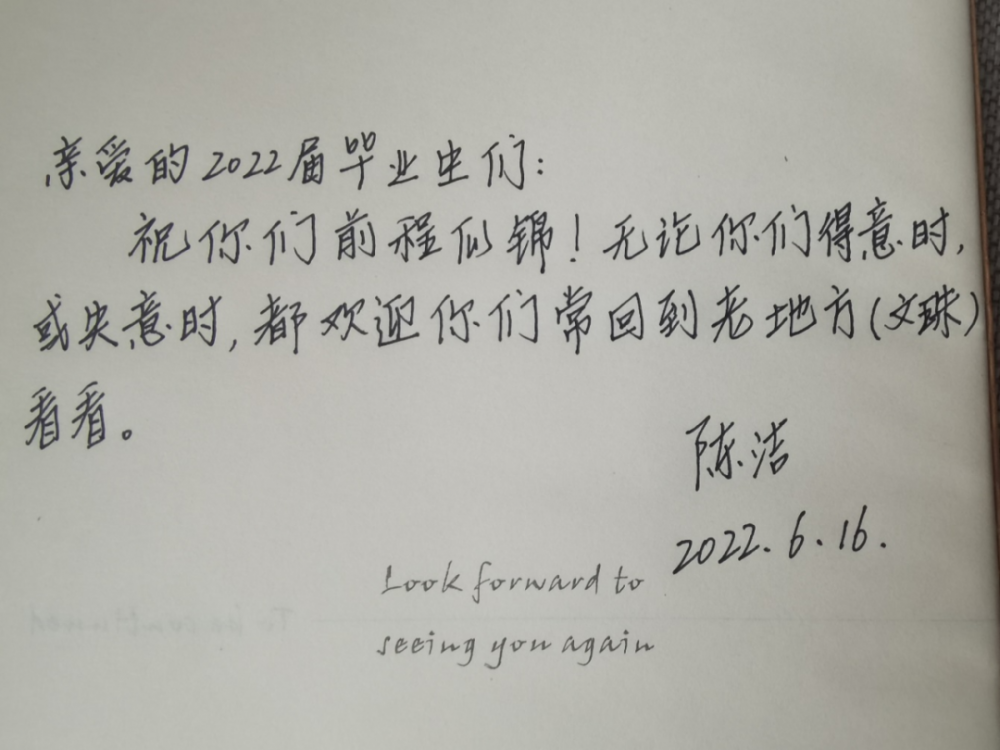 亲爱的2022届毕业生们：
祝你们前程似锦！无论你们得意时，
或失意时，都欢迎你们常回到老地方(文珠)
看看。
陈洁
2022.6.16.
Look forward to
seeing you again
To be continued